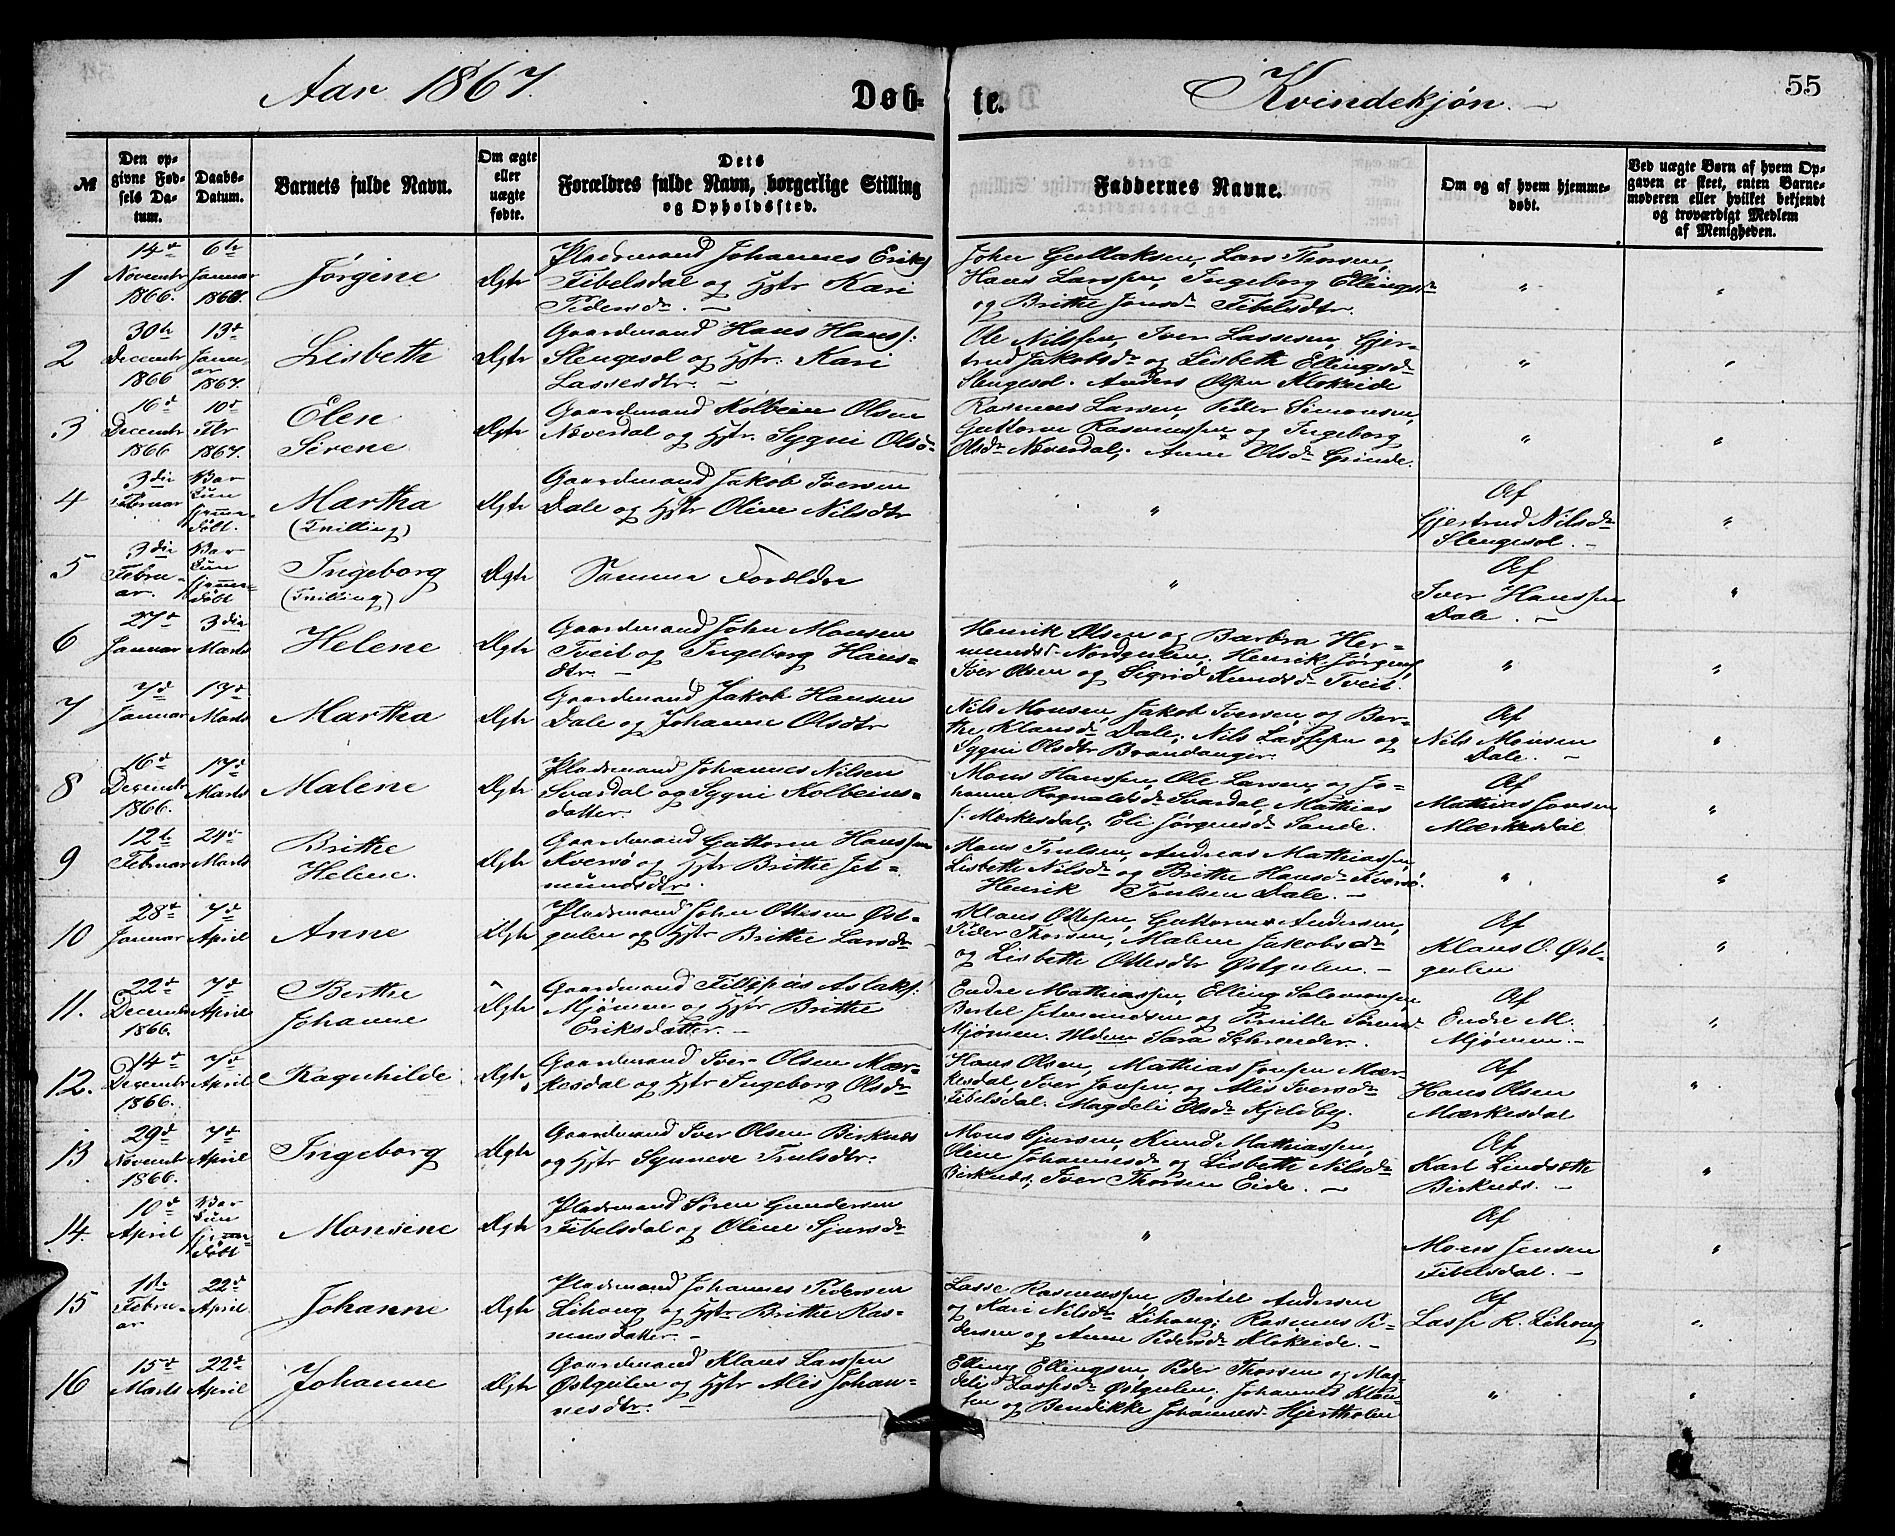 Aar 1867. Døb-
te. Kvindekjøn. 55
№
Den op-
givne Fød-
sels Da-
tum.
Daabs-
Datum.
Barnets fulde Navn.
Om ægte
eller
uægte
fødte.
Dets
Forældres fulde Navn, borgerlige Stilling
og Opholdssted.
Faddernes Navne.
Om og af hvem hjemme-
døbt.
Ved uægte Børn af hvem Op-
gaven er skeet, enten Barne-
moderen eller hvilket bekjendt
og troværdigt Medlem
af Menigheden.
1
14de
Novembr
1866.
6te
Januar
Jørgine
Dgtr
Pladsmand Johannes Eriks
Tibelsdal og Hstr Kari
Pedersdr. –
John Gullaksen, Lars Thorsen,
Hans Larssen, Ingeborg Ellingsdr
og Brithe Jonsdr Tibelsdtr.
"
"
2
30te
Decembr
1866
13de
Janu-
ar
1867.
Lisbeth
Dgtr
Gaardmand Hans Hanss:
Slengesol og Hstr. Kari
Lassesdtr. –
Ole Nilssen, Iver Lassesen, Gjer-
trud Jakobsdr og Lisbeth Ellingsdr
Slengesol. Anders Olsen Klokeide
"
"
3
16de
Decembr
1866
10de
Fbr
1867.
Elen
Sirene
Dgtr
Gaardmand Kolbein Olsen
Næverdal og Hstr. Sygni Olsd-
Rasmus Larsen, Peder Simonsen,
Guttorm Rasmussen og Ingeborg
Olsdr Næverdal; Anne Olsdr Grinde.
"
"
4
3die
Februar
Bar
Kun
hjemme-
døbt.
Martha
(Tvilling)
Dgtr
Gaardmand Jakob Iversen
Dale og Hstr Oline Nilsdtr
"
Af
Gjertrud Nilsdr
Slengesol. –
"
5
3die
Febru-
ar.
Bar
Kun
hjemme-
døbt
Ingeborg
(Tvilling)
Dgtr
Samme Forældre
"
Af
Iver Hanssen
Dale. –
"
6
27de
Januar
3die
Marts
Helene
Dgtr
Gaardmand John Monsen
Tveit og Ingeborg Hans-
dtr. –
Henrik Olsen og Barbra Her-
mundsd. Nordgulen, Henrik Jørgens
Iver Olsen og Sigrid Knudsdr Tveit.
"
"
7
7de
Januar
17de
Marts
Martha
Dgtr
Gaardmand Jakob Hansen
Dale og Johanne Olsdtr
Nils Monsen, Jakob Iversen og Ber-
the Klausdr Dale; Nils Lassesen og
Sygni Olsdtr Brandanger.
Af
Nils Monsen
Dale. –
"
8
16de
Decembr
1866
17de
Marts
Malene
Dgtr
Pladsmand Johannes Nilsen
Svardal og Sygni Kolbeins-
datter.
Mons Hanssen, Ole Larsen og Jo-
hanne Rognaldsdr Svardal, Mathias
J. Mærkesdal, Eli Jørgensdr Sande.
Af
Mathias Jonsen
Mærkesdal
"
9
12te
Februar
24de
Marts
Brithe
Helene.
Dgtr
Gaardmand Guttorm Hanssen
Kversø og Hstr Brithe Jet-
mundsdtr.
Mons Trulsen, Andreas Mathiassen,
Lisbeth Nilsdr og Brithe Hansdr Kversø.
Henrik Trulsen Dale. –
"
"
10
28de
Januar
7de
April
Anne
Dgtr
Pladsmand John Ottesen Øst-
gulen og Hstr Brithe Larsdr
Klaus Ottesen, Guttorm Andersen,
Peder Thorsen, Malene Jakobsdr
og Lisbeth Ottesdtr Østgulen. –
Af
Klaus O. Øst-
gulen
"
11.
22de
Decembr
1866.
7de
April
Berthe
Johanne
Dgtr
Gaardmand Fillipias Aslaks:
Mjømen og Hstr Brithe
Eriksdatter. –
Endre Mathiassen, Elling Salomonsen
Bertel Jetmundsen og Pernille Sørensd.
Mjømen. Mdme Sara Schrøuder.
Af
Endre M.
Mjømen. –
"
12.
14de
Decembr
1866.
7de
April
Ragnhilde.
Dgtr
Gaardmand Iver Olsen Mær-
kesdal og Hstr Ingeborg Olsdr
Hans Olsen, Mathias Jonsen Mær-
kesdal, Iver Jonsen og Alis Iversdr
Tibelsdal. Magdeli Olsdr Kjelsby.
Af
Hans Olsen
Mærkesdal
"
13
29de
Novembr
1866.
7de
April
Ingeborg
Dgtr
Gaardmand Iver Olsen Birknes
og Hstr Synneve Trulsdtr.
Mons Sjursen, Knud Mathiassen,
Oline Johannesdr og Lisbeth Nilsdr
Birknes, Iver Thorsen Eide. –
Af
Karl Lindsøtte
Birknes. –
"
14.
10de
April
Bar
Kun
hjemme-
døbt
Monsine
Dgtr
Pladsmand Søren Gundersen
Tibelsdal og Oline Sjursdr
"
Af
Mons Jensen
Tibelsdal. –
"
15
1ste
Febru-
ar
22de
April
Johanne
Dgtr
Pladsmand Johannes Pedersen
Lihoug og Hstr Brithe Ras-
musdatter. –
Lasse Rasmussen, Bertel Andersen
og Kari Nilsdr Lihoug; Rasmus Pe-
dersen og Anne Pedersdr Klokeide. –
Af
Lasse R. Lihoug
"
16
15de
Marts
22de
April
Johanne
Dgtr
Gaardmand Klaus Larssen
Østgulen og Hstr Alis Johan-
nesdtr. –
Elling Ellingsen, Peder Thorsen og Mag-
deli Lassesdr Østgulen, Johannes Klau-
sen og Bendikke Johannesdr Hjertholm
"
"